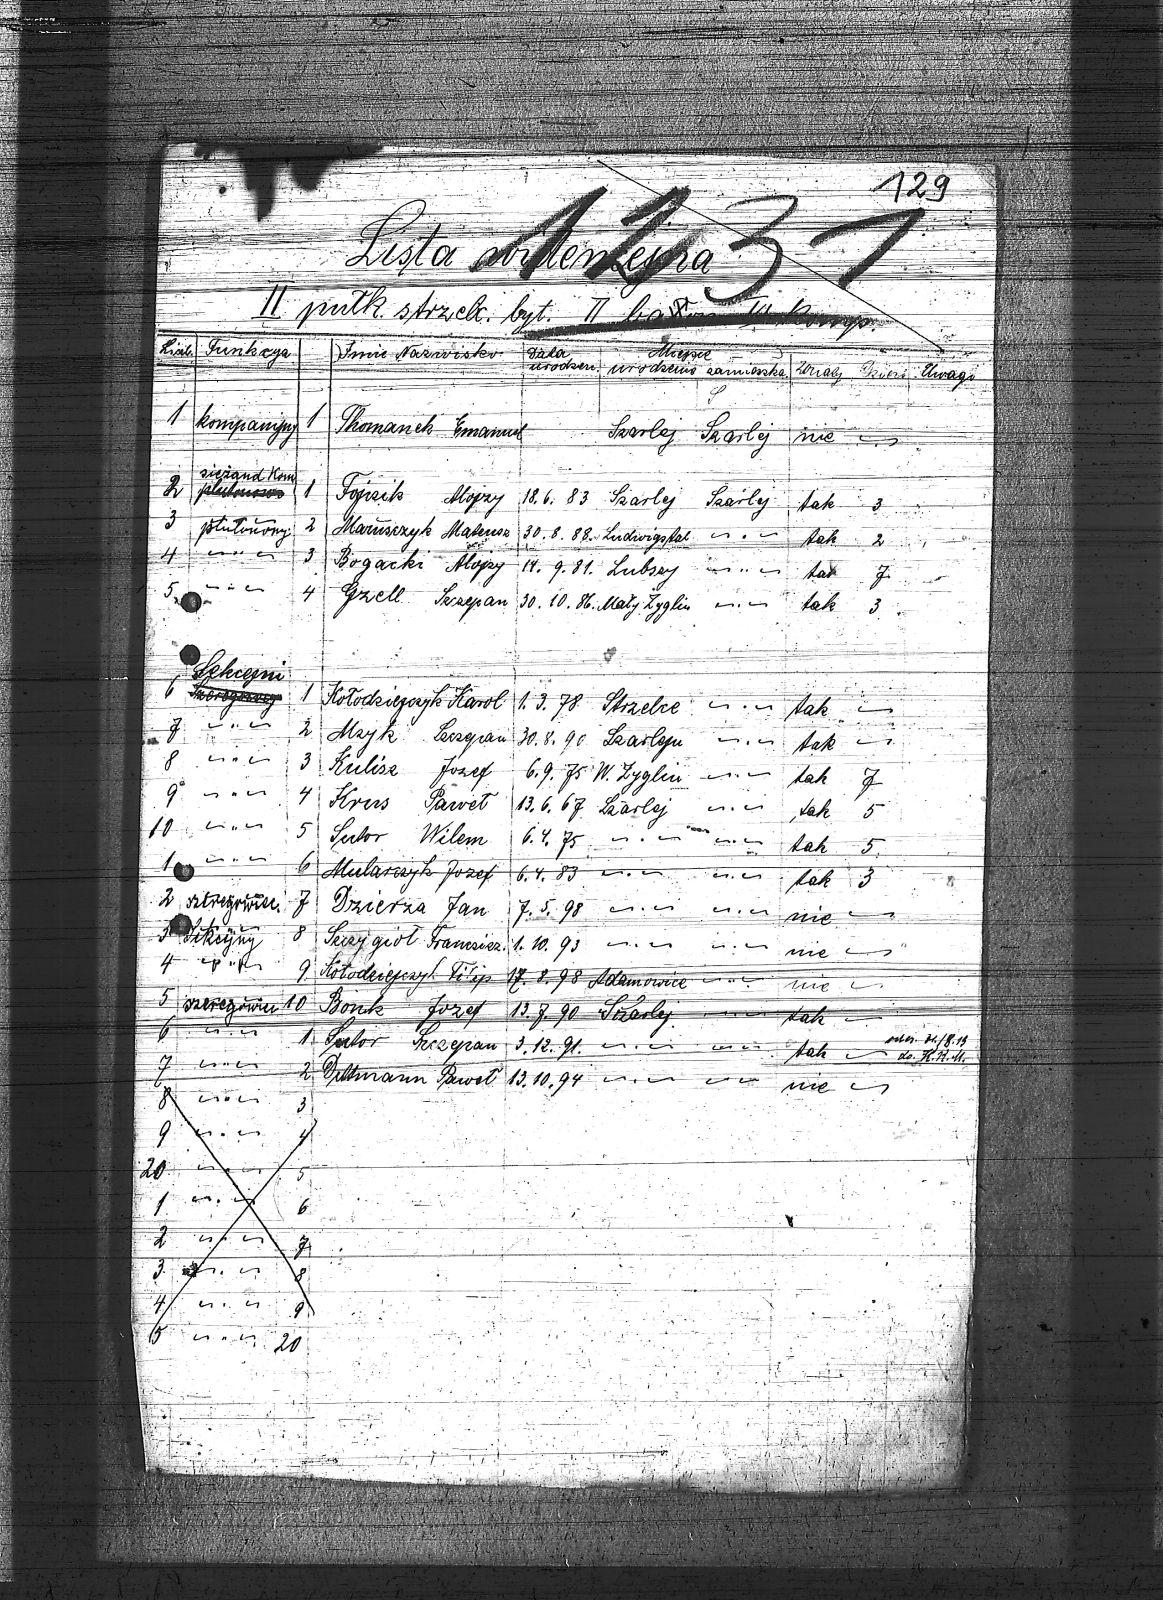 129
1131
Lista ewidencyjna
II pułk. strzelc. byt. II baton VI komp.
Liczb. Funkcya Imie Nazwisko Data urodzen. Miejsce urodzenia zamieszka. Żonaty Dzieci Uwagi
1 kompanijny 1 Thomanek Emanuel Szarlej Szarlej nie
2 sierżand Kom. 1 Fojcik Alojzy 18.6.83 Szarlej Szarlej tak 3
3 plutonowy 2 Maruszczyk Mateusz 30.8.88. Ludwigstal " tak 2
4 " 3 Bogacki Alojzy 14.9.81. Lubszy " tak 7
5 " 4 Gzell Szczepan 30.10.86. Mały Żyglin " tak 3
Sekcyjni
6 1 Kołodziejczyk Karol 1.3.78 Strzelce " tak
7 " 2 Mzyk Szczepan 30.8.90 Szarleju " tak
8 " 3 Kulisz Jozef 6.9.75 W. Żyglin " tak 7
9 " 4 Krus Paweł 13.6.67 Szarlej " tak 5
10 " 5 Sutor Wilem 6.4.75 " " tak 5
1 " 6 Mularczyk Jozef 6.4.83 " " tak 3
2 szeregowiec. 7 Dzierza Jan 7.5.98 " " nie
3 Sekcyjny 8 Szczygioł Francisz. 1.10.93 " " nie
4 " 9 Kołodziejczyk Filip 17.8.98 Adamowice " nie
5 szeregowiec 10 Bonk Jozef 13.7.90 Szarlej " tak
6 " 1 Sutor Szczepan 3.12.91. " " tak
do. K.K.M.
7 " 2 Dittmann Paweł 13.10.94 " " nie
8 " 3
9 " 4
20 " 5
1 " 6
2 " 7
3 " 8
4 " 9
5 " 20